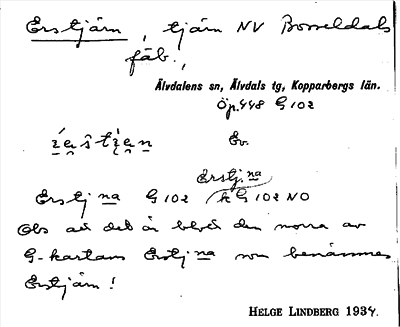 Erstjärn, tjärn NV Bosseldals
fäb.,
Älvdalens sn, Älvdals tg, Kopparbergs län.
Öp. 448 G 102
Ev.
Erstj. na
Erstj na G 102 k G 102 NO
Obs att det är den norra av
G-kartans Erstj na som benämnes
Erstjärn!
HELGE LINDBERG 1934.